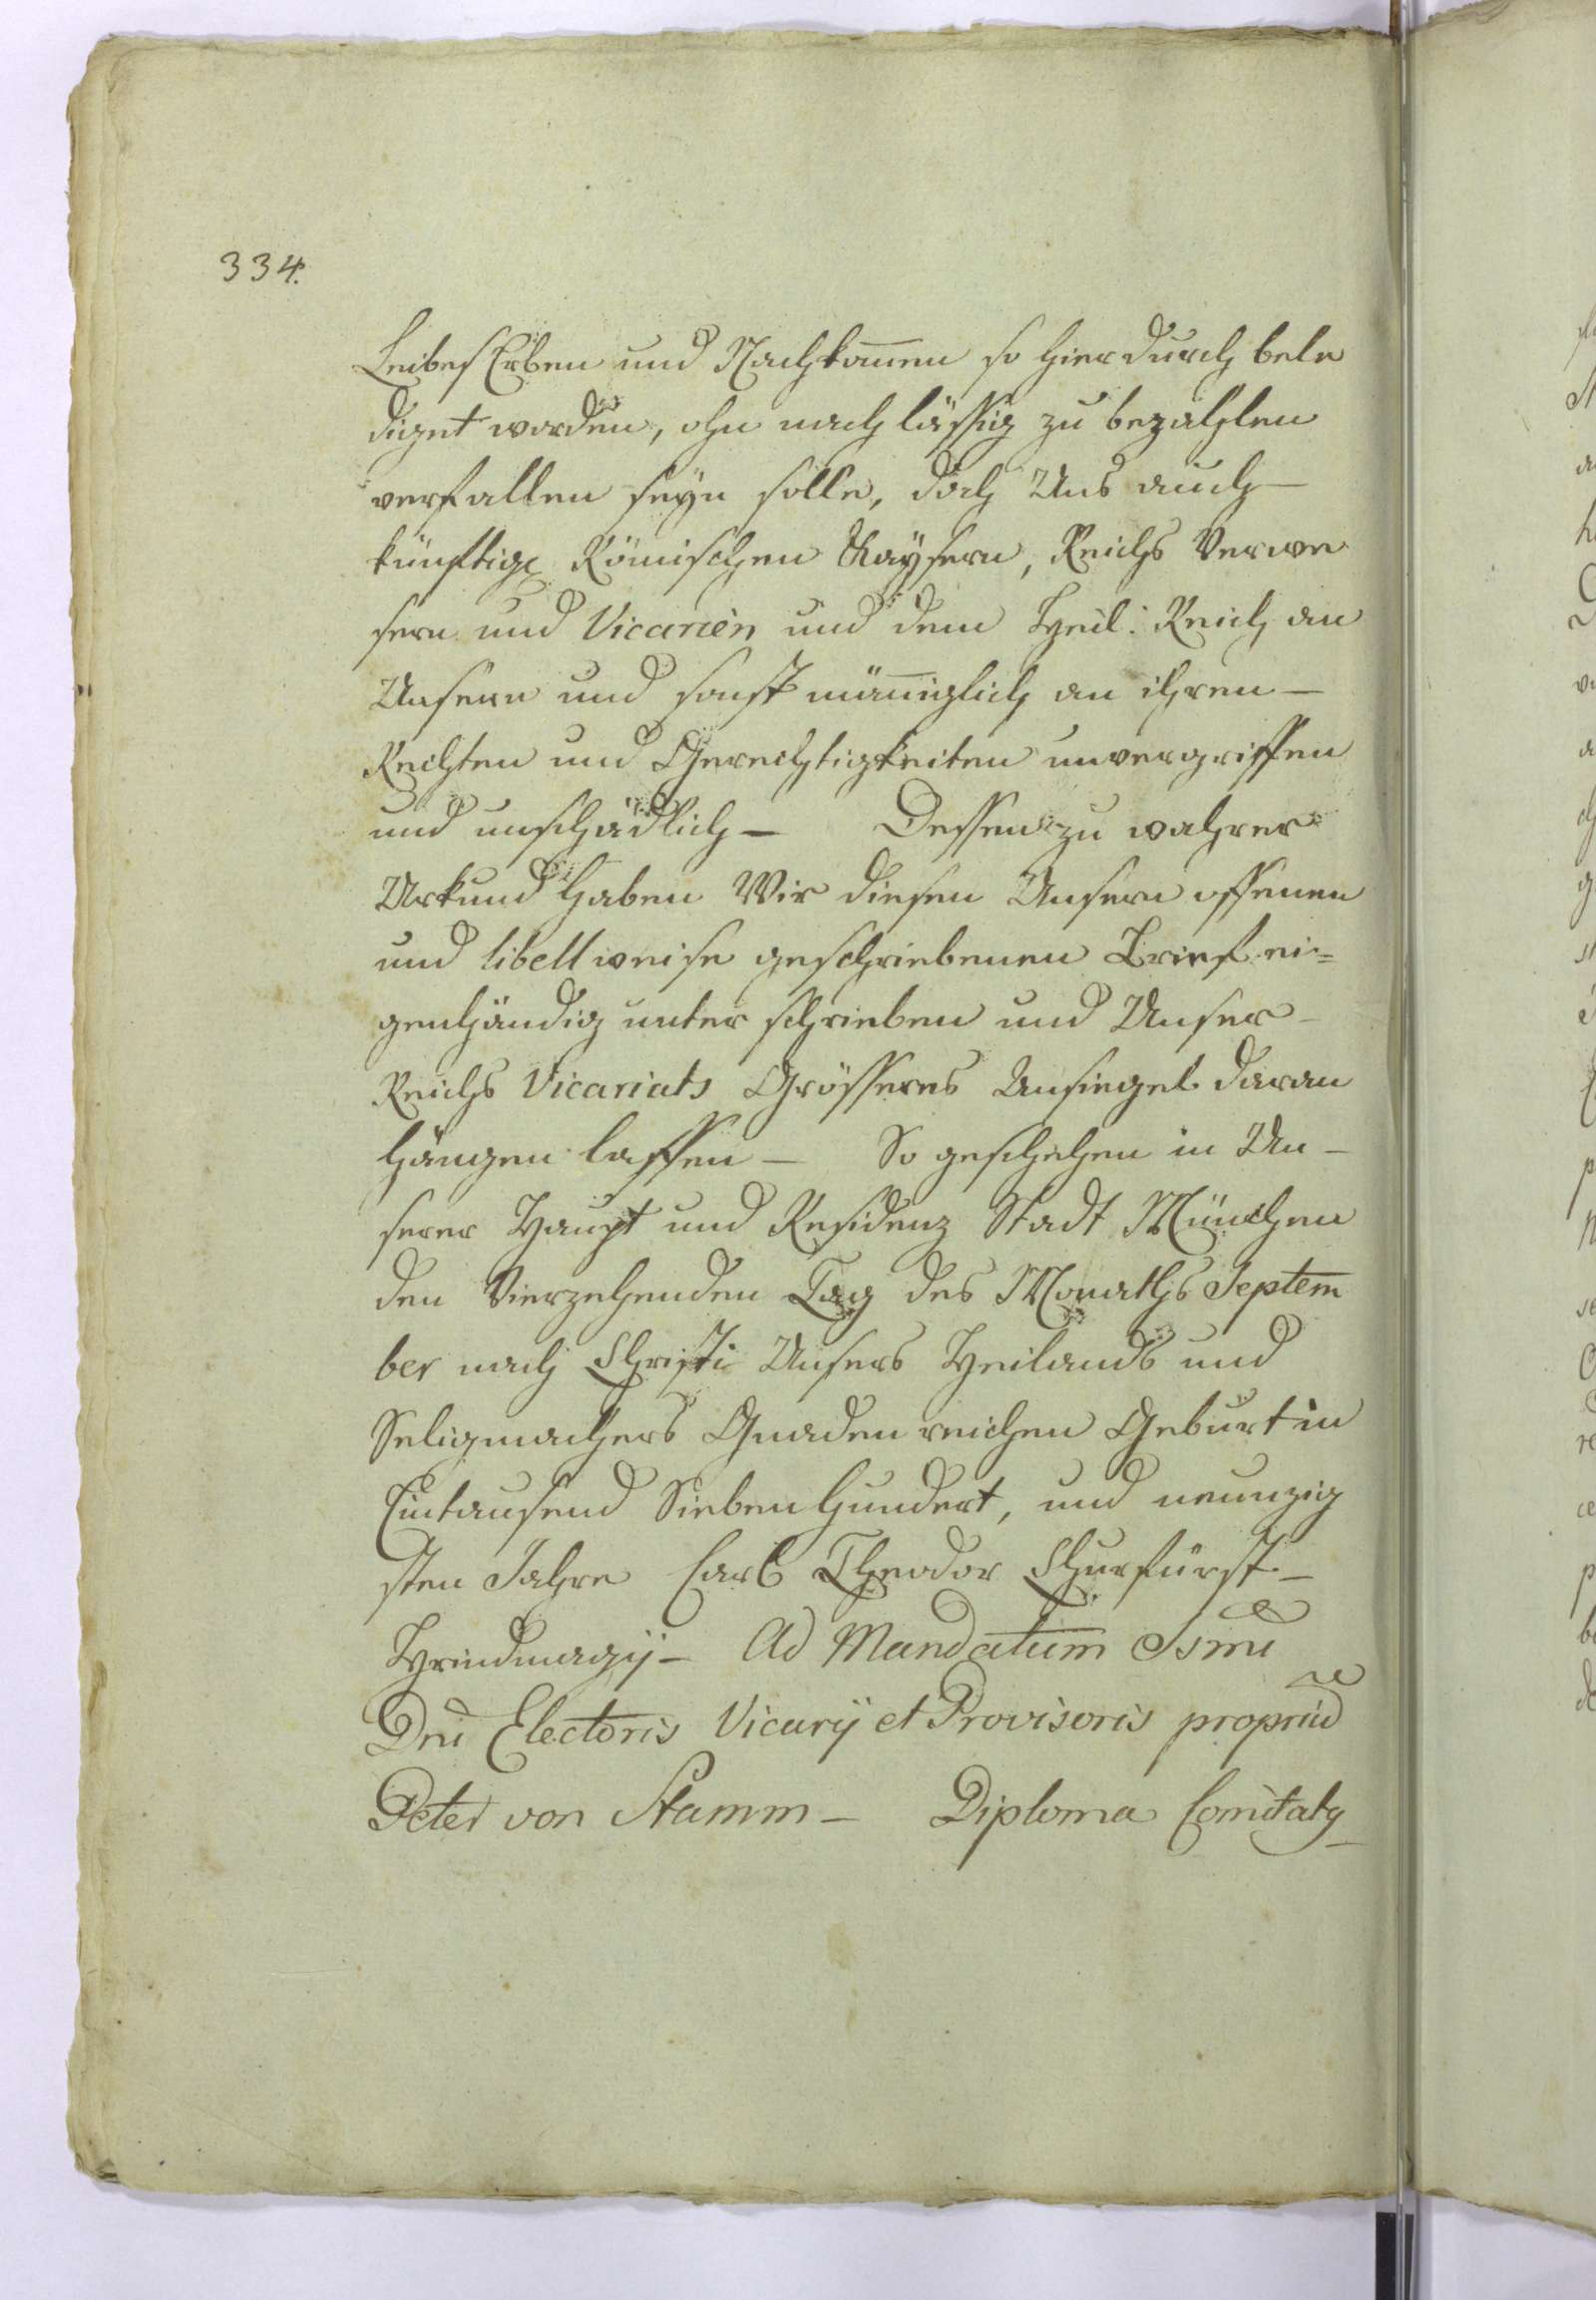 334.
Leibes Erben und Nachkom̄en so hierdurch bele
diget worden, ohn nachlässig zu bezahlen
verfallen seyn solle, doch Uns auch
künftige Römischen Kaysern, Reichs Verwe
sern und Vicarien und dem Heil: Reich an
Unsern und sonst män̄iglich an ihren
Rechten und Gerechtigkeiten unvergriffen
und unschädlich – Dessen zu wahrer
Urkund haben Wir diesen Unsern offenen
und libellweise geschriebenen Brief ei=
genhändig unterschrieben und Unser
Reichs Vicariats Grösseres Insiegel daran
hängen lassen – So geschehen in Un-
serer Haupt und Residenz Stadt München
den Vierzehenden Tag des Monaths Septem
ber nach Christi Unsers Heilands und
Seligmachers Gnadenreichen Geburt in
Eintausend Siebenhundert, und neunzig
sten Jahre Carl Theodor Churfürst –
Ad Mandatum
Dni Electoris Vicarij et Provisoris
Peter von Stamm – Diploma Comitatg